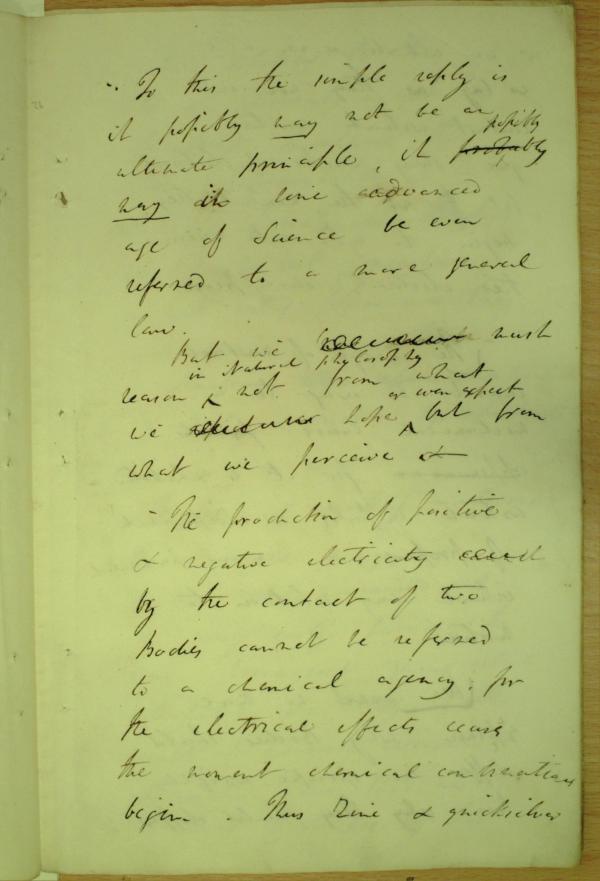 - To this the simple reply is
it possibly may not be an
possibly
ultimate principle, it probably
may in some advanced
age of Science be even
referred to a more general
law.
But we must
in Natural philosophy
reason ^ not from what
or even expect
we hope ^ but from
what we perceive &
- The production of positive
& negative electricity
by the contact of two
Bodies cannot be referred
to a chemical agency, for
the electrical effects cease
the moment chemical combinations
begin. Thus Zinc & quicksilver